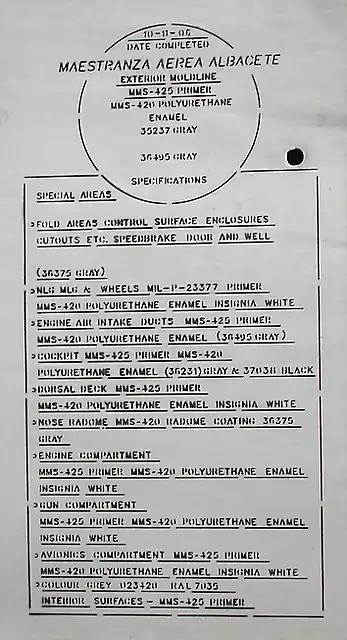 10-11-06
DATE COMPLETED
MAESTRANZA AEREA ALBACETE
EXTERIOR MOLDLINE
MMS-425 PRIMER
MMS-420 POLYURETHANE
ENAMEL
35237 GRAY
36495 GRAY
SPECIFICATIONS
SPECIAL AREAS
>FOLD AREAS CONTROL SURFACE ENCLOSURES
CUTOUTS ETC. SPEEDBRAKE DOOR AND WELL
(36375 GRAY)
>NLG MLG & WHEELS MIL-P-23377 PRIMER
MMS-420 POLYURETHANE ENAMEL INSIGNIA WHITE
>ENGINE AIR INTAKE DUCTS MMS-425 PRIMER
MMS-420 POLYURETHANE ENAMEL (36495 GRAY)
>COCKPIT MMS-425 PRIMER MMS-420
POLYURETHANE ENAMEL (36231) GRAY & 37038 BLACK
>DORSAL DECK MMS-425 PRIMER
MMS-420 POLYURETHANE ENAMEL INSIGNIA WHITE
>NOSE RADOME MMS-420 RADOME COATING 36375
GRAY
>ENGINE COMPARTMENT
MMS-425 PRIMER MMS-420 POLYURETHANE ENAMEL
INSIGNIA WHITE
>GUN COMPARTMENT
MMS-425 PRIMER MMS-420 POLYURETHANE ENAMEL
INSIGNIA WHITE
>AVIONICS COMPARTMENT MMS-425 PRIMER
MMS-420 POLYURETHANE ENAMEL INSIGNIA WHITE
>COLOUR GREY 023420 RAL 7035
INTERIOR SURFACES - MMS-425 PRIMER